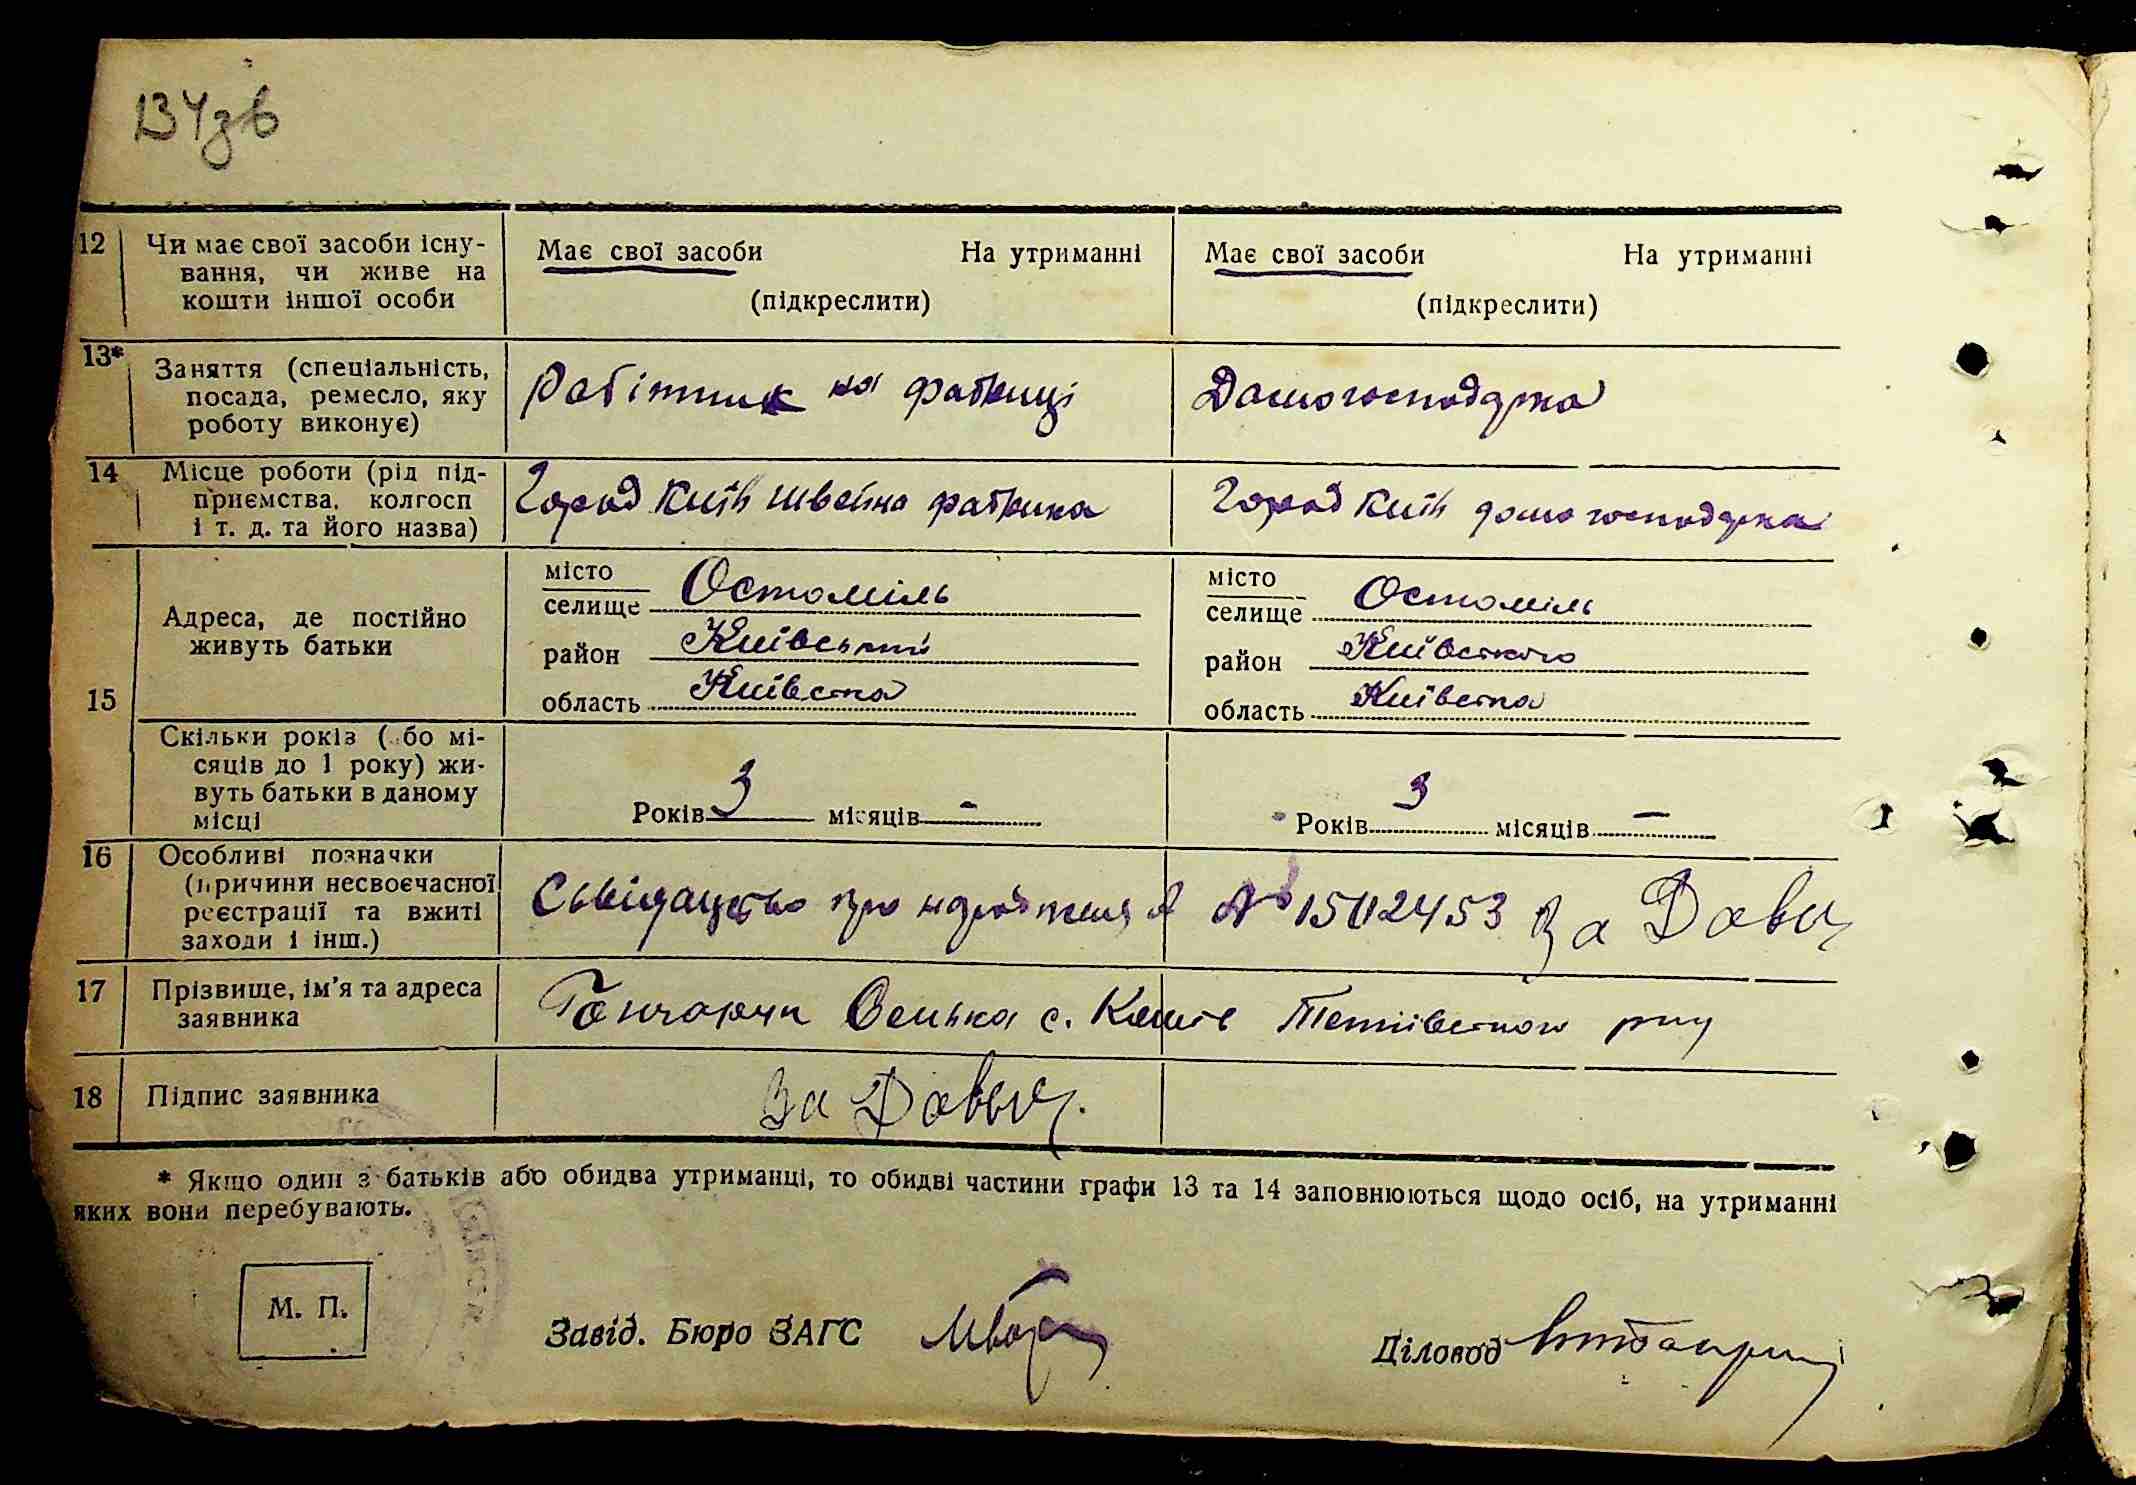 134зв
12 Чи має свої засоби існу-
вання, чи живе на
кошти іншої особи
Має свої засоби На утриманні
(підкреслити)
Має свої засоби На утриманні
(підкреслити)
13* Заняття (спеціальність,
посада, ремесло, яку
роботу виконує)
Робітник на фабриці
Домогосподарка
14 Місце роботи (рід під-
приємства, колгосп
і т. д. та його назва)
Город Київ швейна фабрика
Город Київ домогосподарка
15 Адреса, де постійно
живуть батьки
місто
селище Остоміль
район Київський
область Київска
місто
селище Остоміль
район Київского
область Київска
Скільки років (або мі-
сяців до 1 року) жи-
вуть батьки в даному
місці
Років 3 місяців -
Років 3 місяців -
16 Особливі позначки
(причини несвоєчасної
реєстрації та вжиті
заходи і інш.)
про народження № 1502453 За
17 Прізвище, ім'я та адреса
заявника
Гончарук с. Тетіївского рну
18 Підпис заявника
За
* Якщо один з батьків або обидва утриманці, то обидві частини графи 13 та 14 заповнюються щодо осіб, на утриманні
яких вони перебувають.
М. П.
Завід. Бюро ЗАГС
Діловод